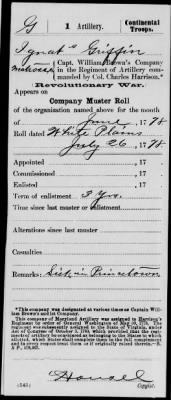 G | 1 Artillery. | Continental Troops.
Ignat s Griffin
Matross, Capt. William Brown's Company in the Regiment of Artillery commanded by Col. Charles Harrison.*
Revolutionary War.
Appears on
Company Muster Roll
of the organization named above for the month
of June, 1778
Roll dated White Plains
July 26, 1778
Appointed , 17
Commissioned , 17
Enlisted , 17
Term of enlistment 3 Yrs.
Time since last muster or enlistment
Alterations since last muster
Casualties
Remarks: Sick in Princetown
*This company was designated at various times as Captain William Brown's and 1st Company.
This company of Maryland Artillery was assigned to Harrison's Regiment by order of General Washington of May 30, 1778. The regiment was subsequently assigned to the State of Virginia, under Act of Congress of October 3, 1780, which provided that the regiment of artillery be considered as belonging to the States to which allotted, which States shall complete them to the full complement and in every respect treat them as if originally raised therein.—R. & P., 436,867.
(545) Copyist.